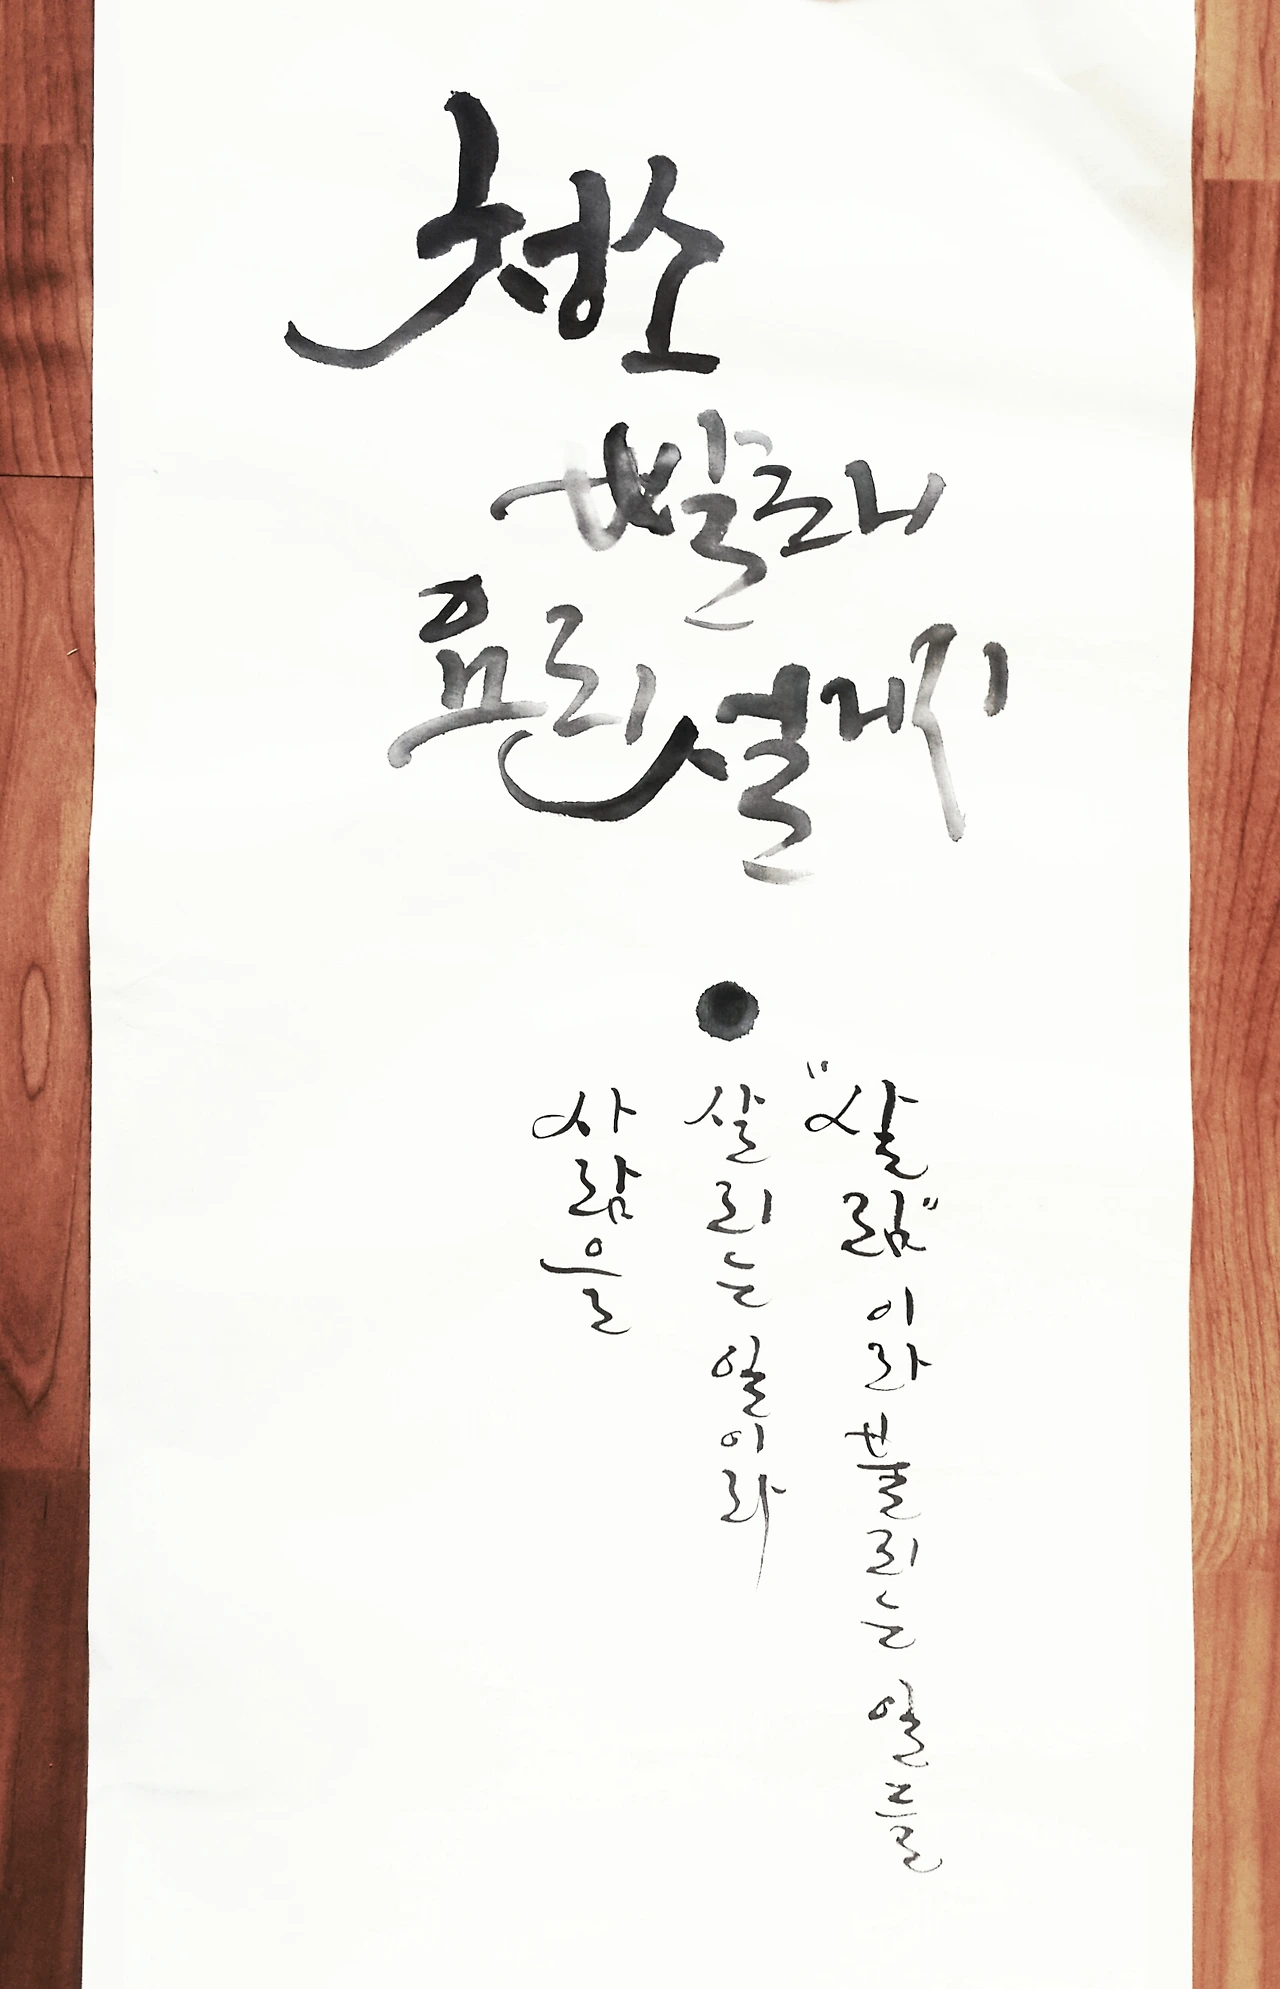 청소
빨래
요리 설거지
사람을
살리는 일이라
"살림"이라 불리는 일들